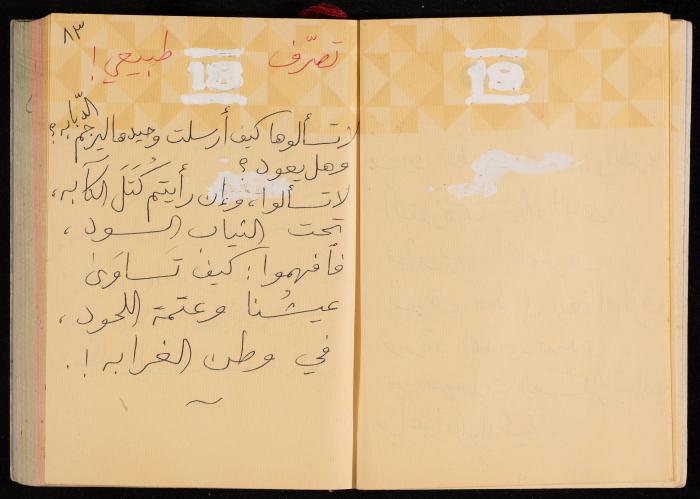 ٨٣
تصرّف طبيعي!
18
19
لا تسألوها كيف أرسلت وحيدها ليرجمَ الدبّابه؟
وهل يعود؟
لا تسألوا، وإن رأيتم كُتَلَ الكآبه،
تحت الثياب السود،
فافهموا: كيف تَساوَى
عيشُنا وعتمة اللحود،
في وطن الغرابه!.